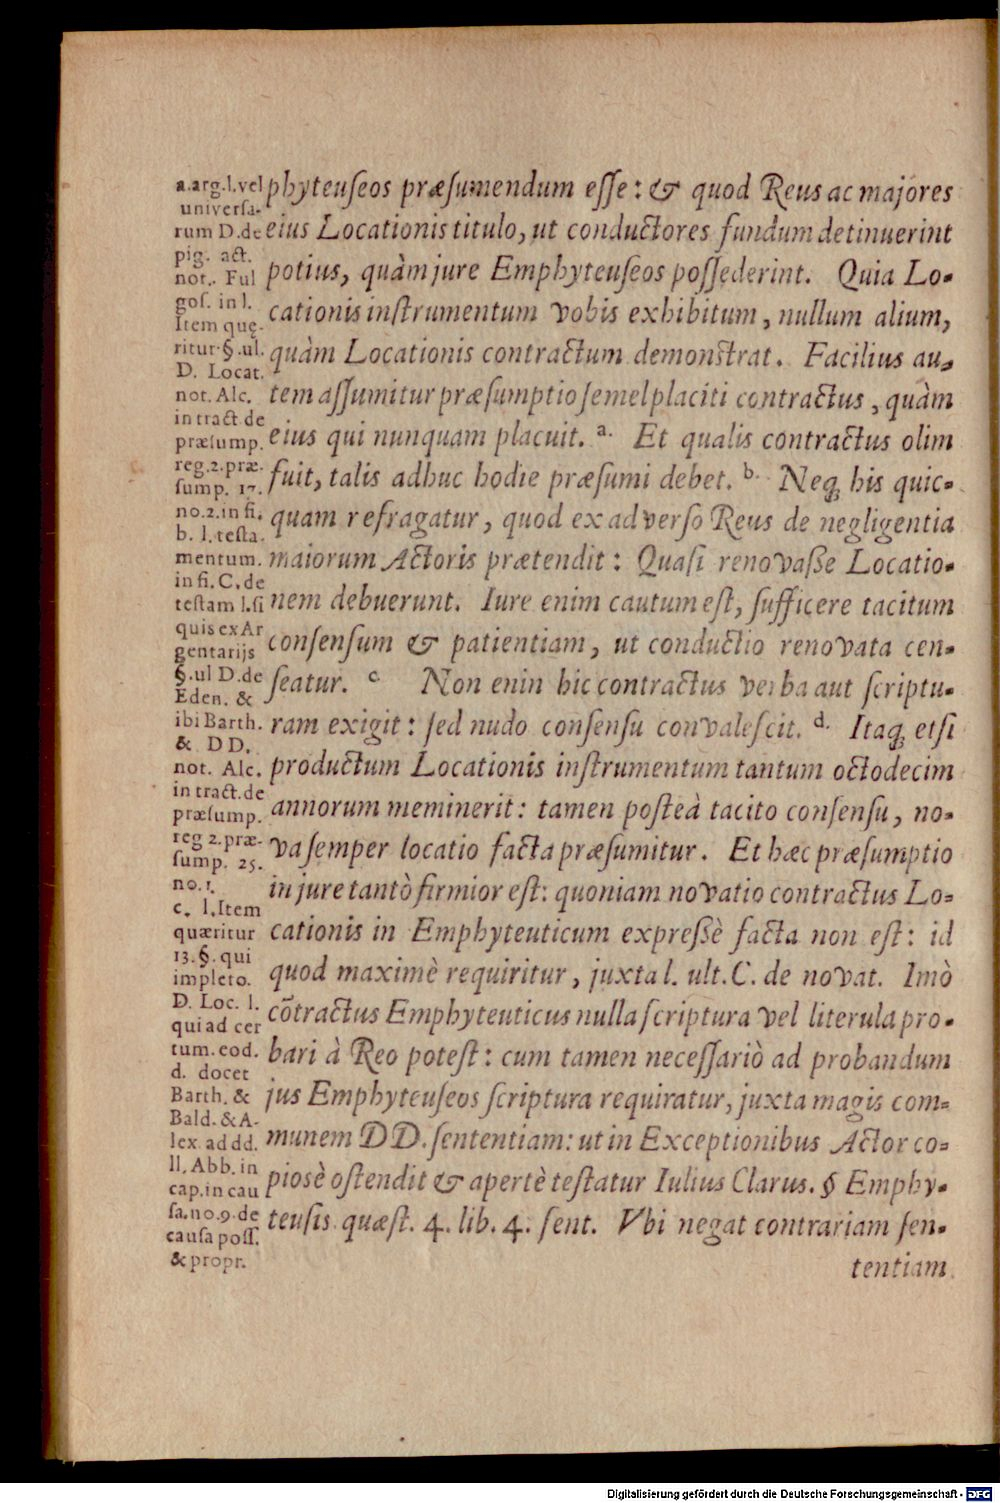 a. arg. l. vel
universa-
rum D. de
pig. act.
not. Ful
gos. in l.
Item quę-
ritur §. ul.
D. Locat.
not. Alc.
in tract. de
præsump.
reg. 2. præ-
sump. 17.
no. 2. in fi.
b. l. testa-
mentum.
in fi. C. de
testam l. si
quis ex Ar
gentarijs
§. ul D. de
Eden. &
ibi Barth.
& DD.
not. Alc.
in tract. de
præsump.
reg 2. præ-
sump. 25.
no. 1.
c. l. Item
quæritur
13. §. qui
impleto.
D. Loc. l.
qui ad cer
tum. eod.
d. docet
Barth. &
Bald. & A-
lex. ad dd.
ll. Abb. in
cap. in cau
sa. no. 9. de
causa poss.
& propr.
phyteuſeos præſumendum eſſe: & quod Reus ac majóres
eius Locationis titulo, ut conductores fundum detinuerint
potius, quàm jure Emphyteuſeos poſſederint. Quia Lo-
cationis inſtrumentum vobis exhibitum, nullum alium,
quàm Locationis contractum demonſtrat. Facilius au-
tem aſſumitur præſumptio ſemel placiti contractus, quàm
eius qui nunquam placuit. a. Et qualis contractus olim
fuit, talis adhuc hodie præſumi debet. b. Neq; his quic-
quam refragatur, quod ex adverſo Reus de negligentia
maiorum Actoris prætendit: Quaſi renovaße Locatio-
nem debuerunt. Iure enim cautum eſt, ſufficere tacitum
conſenſum & patientiam, ut conductio renovata cen-
ſeatur. c Non enin hic contractus verba aut ſcriptu-
ram exigit: ſed nudo conſenſu convaleſcit. d. Itaq; etſi
productum Locationis inſtrumentum tantum octodecim
annorum meminerit: tamen poſteà tacito conſenſu, no-
va ſemper locatio facta præſumitur. Et hæc præſumptio
in jure tantò firmior eſt: quoniam novatio contractus Lo-
cationis in Emphyteuticum expreßè facta non eſt: id
quod maximè requiritur, juxta l. ult. C. de novat. Imò
cõtractus Emphyteuticus nulla ſcriptura vel literula pro-
bari à Reo poteſt: cum tamen neceſſariò ad probandum
jus Emphyteuſeos ſcriptura requiratur, juxta magis com-
munem DD. ſententiam: ut in Exceptionibus Actor co-
pioſè oſtendit & apertè teſtatur Iulius Clarus. § Emphy-
teuſis. quæſt. 4. lib. 4. ſent. Vbi negat contrariam ſen-
tentiam
Digitalisierung gefördert durch die Deutsche Forschungsgemeinschaft - DFG